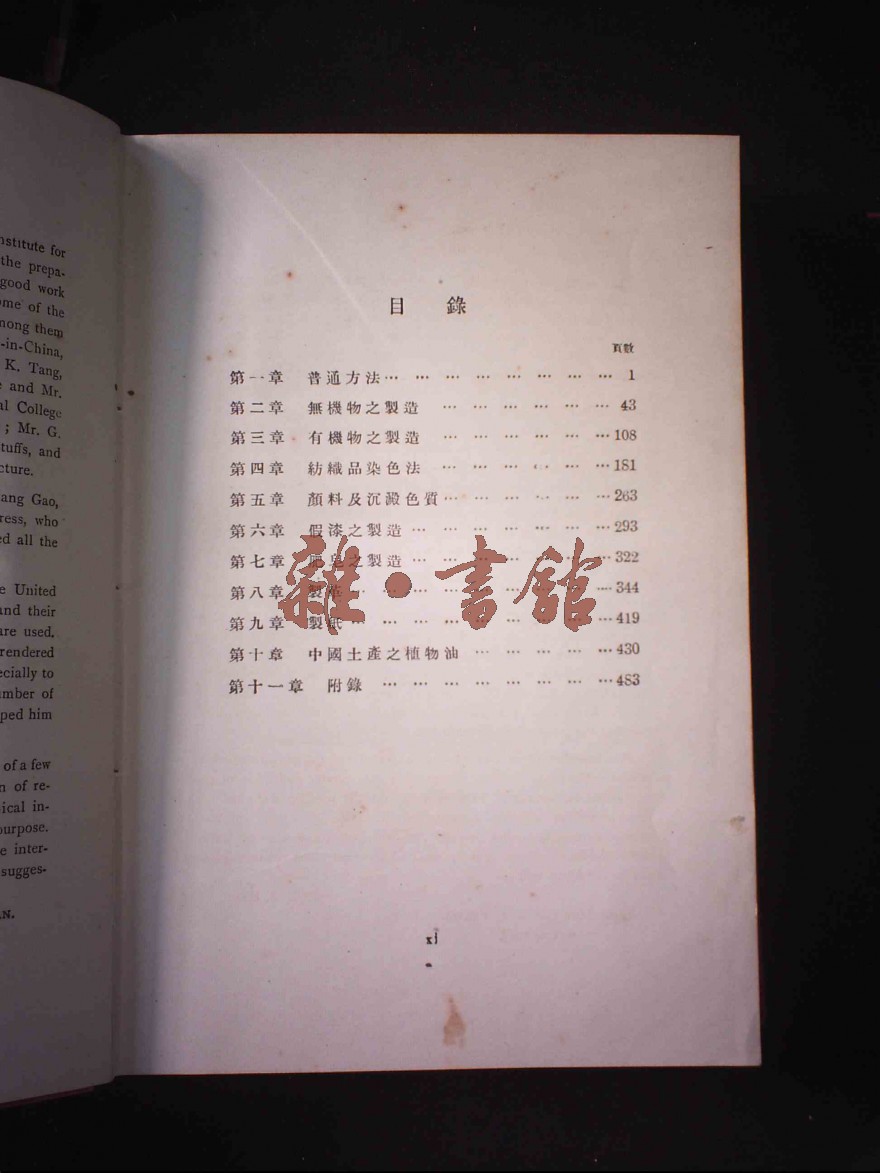 nstitute for
the prepa-
good work
ome of the
mong them
-in-China,
K. Tang,
e and Mr.
al College
; Mr. G.
tuffs, and
cture.
ang Gao,
ress, who
ed all the
e United
and their
are used.
rendered
ecially to
umber of
ped him
of a few
n of re-
ical in-
purpose.
e inter-
sugges-
AN.
目錄
頁數
第一章 普通方法… … … … … … … … 1
第二章 無機物之製造 … … … … … … 43
第三章 有機物之製造 … … … … … …108
第四章 紡織品染色法 … … … … … …181
第五章 顏料及沉澱色質… … … … … …263
第六章 假漆之製造 … … … … … … …293
第七章 肥皂之製造 … … … … … … …322
第八章 製革 … … … … … … … … …344
第九章 製紙 … … … … … … … … …419
第十章 中國土產之植物油 … … … … …430
第十一章 附錄 … … … … … … … …483
雜·書館
xi